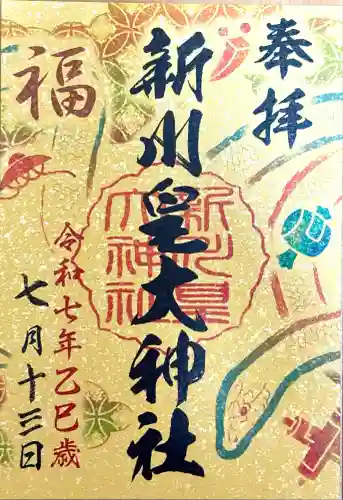 奉拝
新川皇大神社
福
令和七年乙巳歳
七月十三日
新川皇大神社